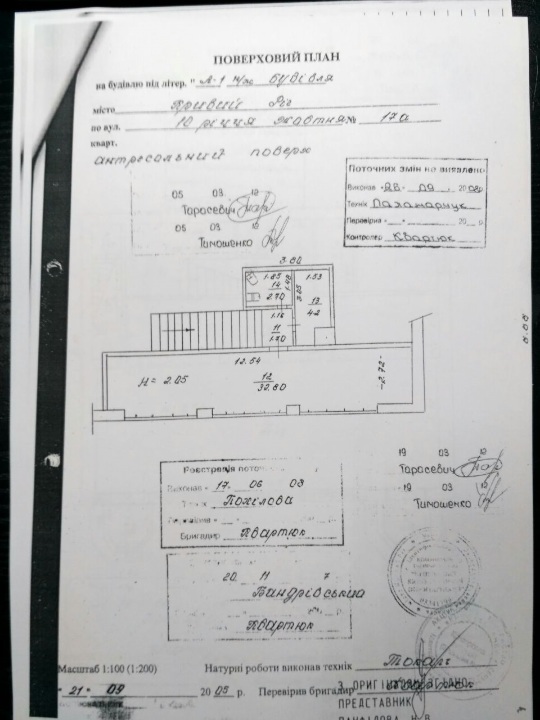 ПОВЕРХОВИЙ ПЛАН
на будівлю під літер. " А-1 н/ж будівля
місто Кривий Ріг
по вул. 10 річчя Жовтня № 17а
кварт.
антресольний поверх
05 03 12
Тарасевич
05 03 12
Тимошенко
Поточних змін не виявлено
Виконав «28» 09 2008р
Технік Паламарчук
Перевірив « » 20 р
Контролер Квартюк
3.60
1.85
14
2.70
1.48
3.05
1.53
13
4.2
1.16
11
1.70
12.54
H= 2.05
12
32.60
2.72
8.08
Реєстрація поточ
Виконав « 17 06 03
Похілова
Бригадир Квартюк
19 03 12
Тарасевич
19 03 12
Тимошенко
20 11 7
Квартюк
Масштаб 1:100 (1:200)
Натурні роботи виконав технік
21 09 2005 р. Перевірив бригадир
З ОРИГІНАЛОМ ЗГІДНО
ПРЕДСТАВНИК